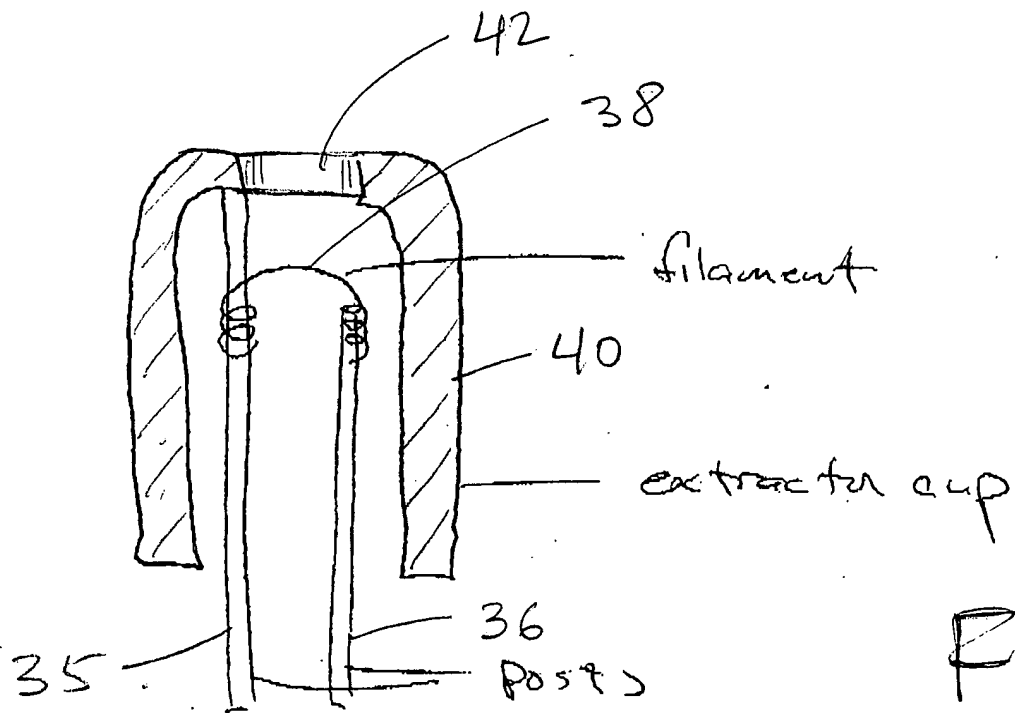 42
38
filament
40
extractor cup
36
35
Posts
F